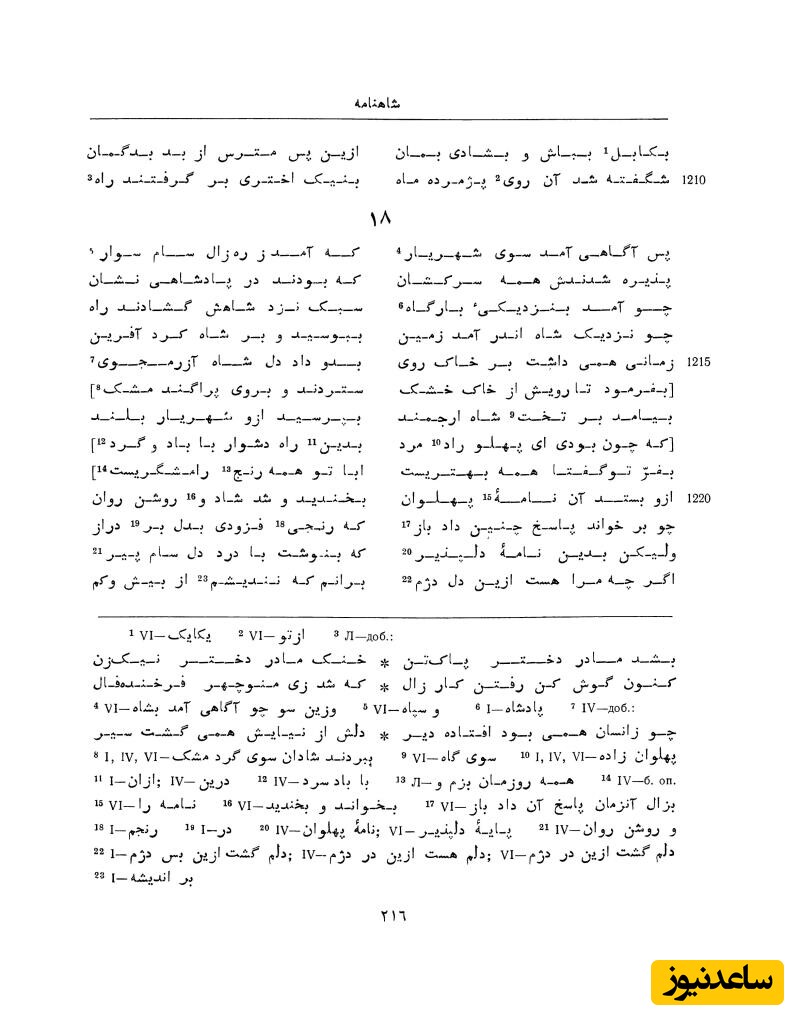 شاهنامه
بکابل¹ بباش و بشادی بمان ازین پس مترس از بد بدگمان
1210 شگفته شد آن روی² پژمرده ماه بنیک اختری بر گرفتند راه³
۱۸
پس آگاهی آمد سوی شهریار⁴ که آمد ز ره زال سام سوار⁵
پذیره شدندش همه سرکشان که بودند در پادشاهی نشان
چو آمد بنزدیکیٔ بارگاه⁶ سبک نزد شاهش گشادند راه
چو نزدیک شاه اندر آمد زمین ببوسید و بر شاه کرد آفرین
1215 زمانی همی داشت بر خاک روی بدو داد دل شاه آزرمجوی⁷
[بفرمود تا رویش از خاک خشک ستردند و بروی پراگند مشک⁸]
بیامد بر تخت⁹ شاه ارجمند بپرسید ازو شهریار بلند
[که چون بودی ای پهلو راد¹⁰ مرد بدین¹¹ راه دشوار با باد و گرد¹²]
بفرّ تو گفتا همه بهتریست ابا تو همه رنج¹³ رامشگریست¹⁴]
1220 ازو بستد آن نامهٔ¹⁵ پهلوان بخندید و شد شاد و¹⁶ روشن روان
چو بر خواند پاسخ چنین داد باز¹⁷ که رنجی¹⁸ فزودی بدل بر¹⁹ دراز
ولیکن بدین نامهٔ دلپذیر²⁰ که بنوشت با درد دل سام پیر²¹
اگر چه مرا هست ازین دل دژم²² برانم که نندیشم²³ از بیش وکم
¹ VI—یکایک ² VI—ازتو ³ Л—доб.:
بشد مادر دختر پاک‌تن * خنک مادر دختر نیک‌زن
کنون گوش کن رفتن کار زال * که شد زی منوچهر فرخنده‌فال
⁴ VI—وزین سو چو آگاهی آمد بشاه ⁵ VI—و سپاه ⁶ I—پادشاه ⁷ IV—доб.:
چو زانسان همی بود افتاده دیر * دلش از نیایش همی گشت سیر
⁸ I, IV, VI—ببردند شادان سوی گرد مشک ⁹ VI—سوی گاه ¹⁰ I, IV, VI—پهلوان زاده
¹¹ I—ازان; IV—درین ¹² IV—با باد سرد ¹³ Л—همه روزمان بزم و ¹⁴ IV—б. оп.
¹⁵ VI—نامه را ¹⁶ VI—بخواند و بخندید ¹⁷ VI—بزال آنزمان پاسخ آن داد باز
¹⁸ I—رنجم ¹⁹ I—در ²⁰ IV—نامهٔ پهلوان; VI—پایهٔ دلپذیر ²¹ IV—و روشن روان
²² I—دلم گشت ازین بس دژم; IV—دلم هست ازین در دژم; VI—دلم گشت ازین در دژم
²³ I—بر اندیشه
۲۱۶
ساعدنیوز